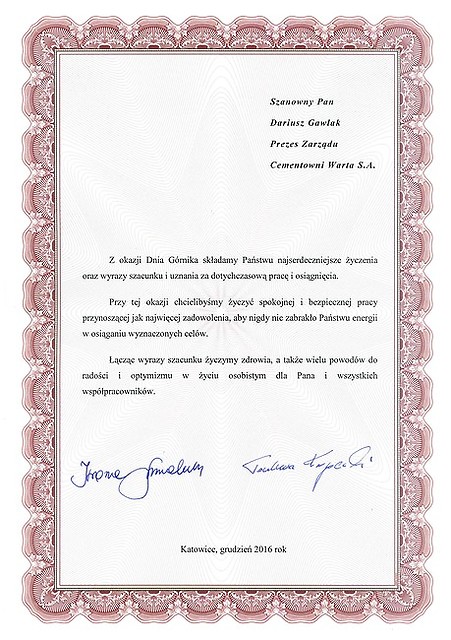 Szanowny Pan
Dariusz Gawlak
Prezes Zarządu
Cementowni Warta S.A.
Z okazji Dnia Górnika składamy Państwu najserdeczniejsze życzenia
oraz wyrazy szacunku i uznania za dotychczasową pracę i osiągnięcia.
Przy tej okazji chcielibyśmy życzyć spokojnej i bezpiecznej pracy
przynoszącej jak najwięcej zadowolenia, aby nigdy nie zabrakło Państwu energii
w osiąganiu wyznaczonych celów.
Łącząc wyrazy szacunku życzymy zdrowia, a także wielu powodów do
radości i optymizmu w życiu osobistym dla Pana i wszystkich
współpracowników.
Iwona
Katowice, grudzień 2016 rok